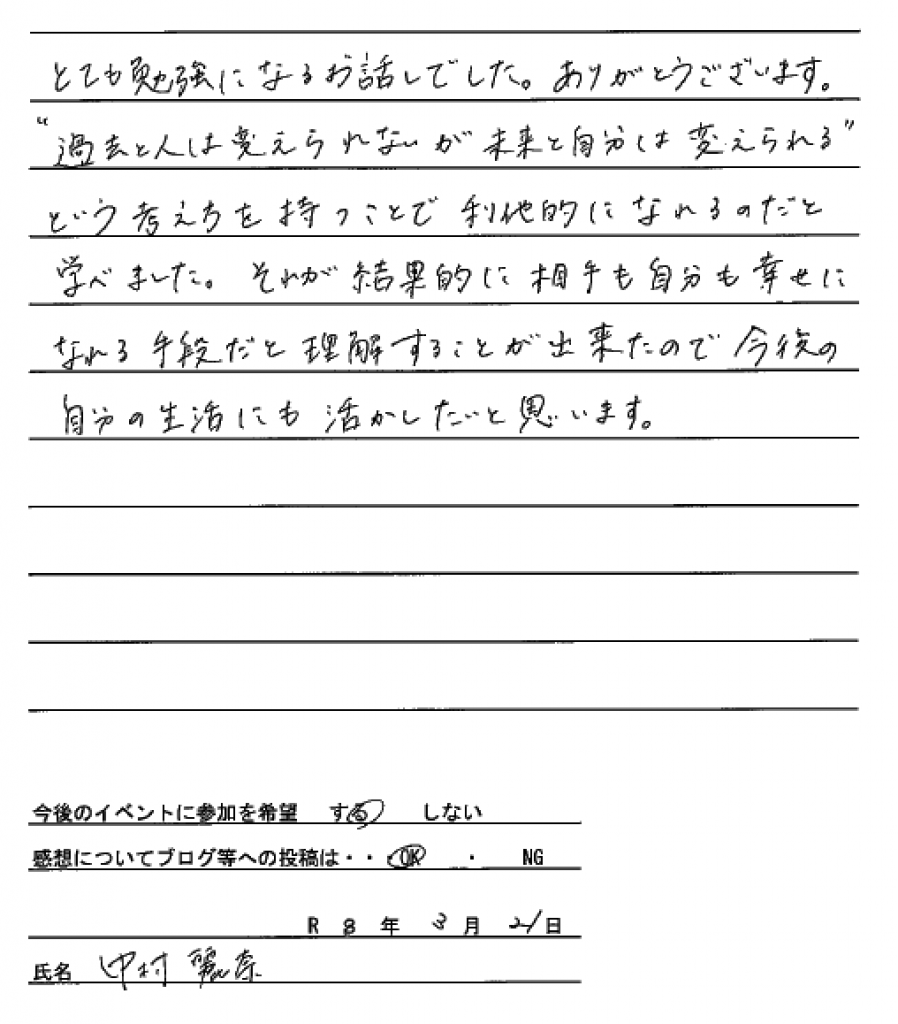 とても勉強になるお話しでした。ありがとうございます。
"過去と人は変えられないが未来と自分は変えられる"
という考え方を持つことで利他的になれるのだと
学べました。それが結果的に相手も自分も幸せに
なれる手段だと理解することが出来たので今後の
自分の生活にも活かしたいと思います。
今後のイベントに参加を希望 する しない
感想についてブログ等への投稿は・・・OK ・ NG
R 8 年 3 月 21 日
氏名 中村 麗奈